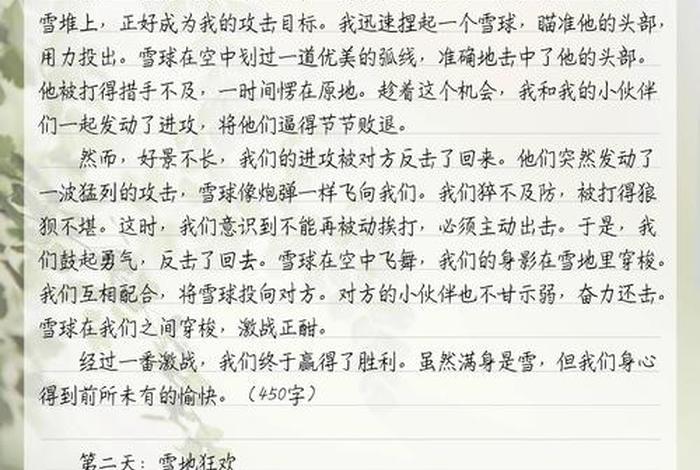 雪堆上，正好成为我的攻击目标。我迅速捏起一个雪球，瞄准他的头部，
用力投出。雪球在空中划过一道优美的弧线，准确地击中了他的头部。
他被打得措手不及，一时间愣在原地。趁着这个机会，我和我的小伙伴
们一起发动了进攻，将他们逼得节节败退。
然而，好景不长，我们的进攻被对方反击了回来。他们突然发动了
一波猛烈的攻击，雪球像炮弹一样飞向我们。我们猝不及防，被打得狼
狈不堪。这时，我们意识到不能再被动挨打，必须主动出击。于是，我
们鼓起勇气，反击了回去。雪球在空中飞舞，我们的身影在雪地里穿梭。
我们互相配合，将雪球投向对方。对方的小伙伴也不甘示弱，奋力还击。
雪球在我们之间穿梭，激战正酣。
经过一番激战，我们终于赢得了胜利。虽然满身是雪，但我们身心
得到前所未有的愉快。（450字）
第二天：雪地狂欢